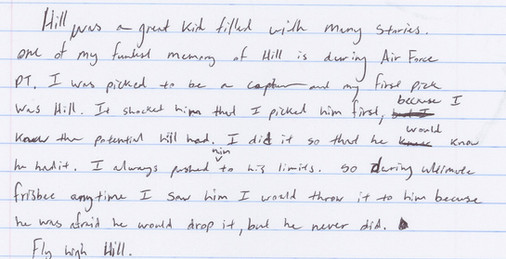 Hill was a great kid filled with many stories.
one of my funest memory of Hill is during Air Force
PT. I was picked to be a capten and my first pick
was Hill. It shocked him that I picked him first, because I
knew the potential hill had. I did it so that he would know
he hadit. I always pushed him to his limits. so during ultimate
frisbee anytime I saw him I would throw it to him because
he was afraid he would drop it, but he never did.
Fly high Hill.